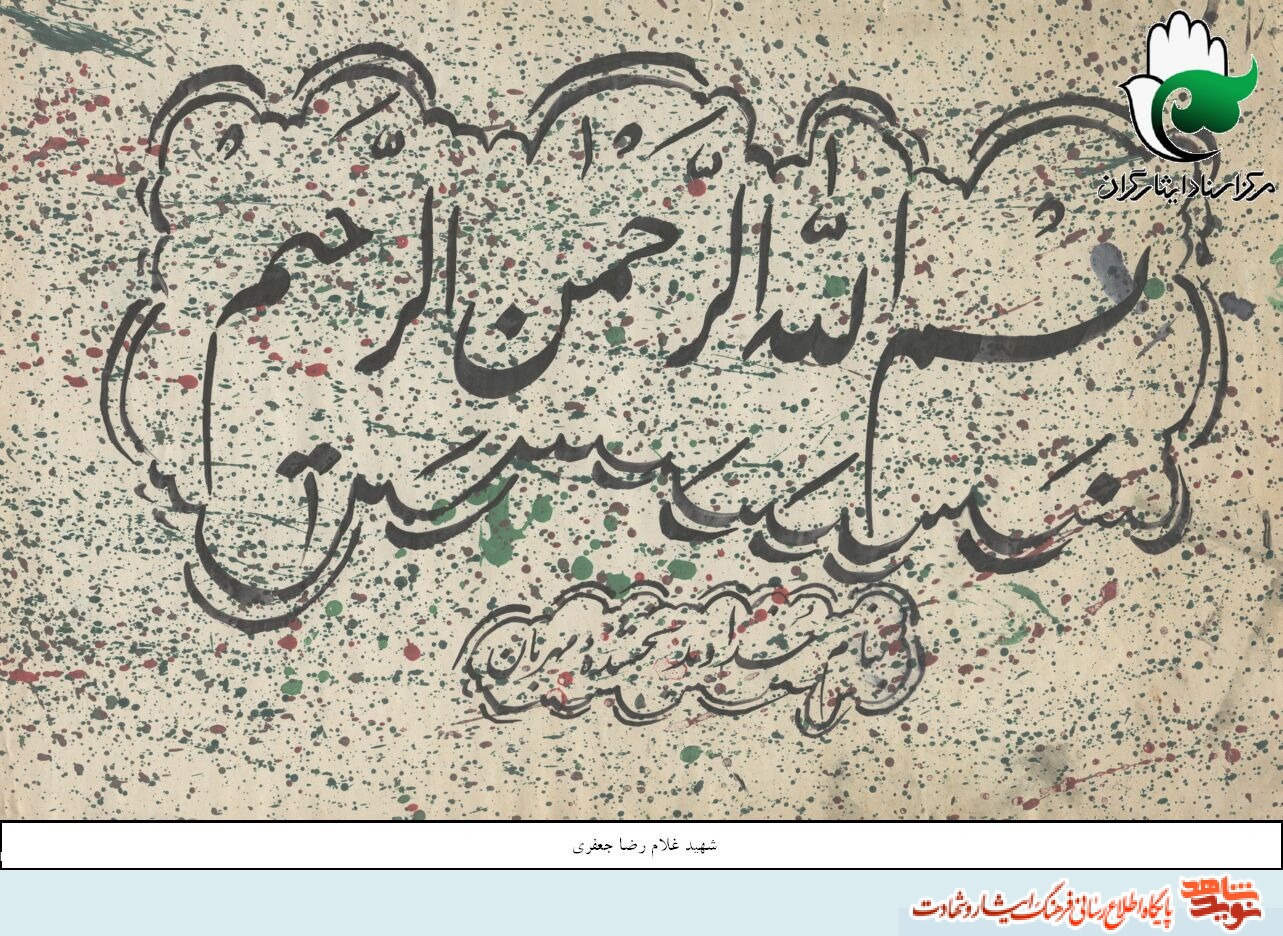 مرکز اسناد ایثارگران
بسم الله الرحمن الرحیم
بنام خداوند بخشنده و مهربان
شهید غلام رضا جعفری
نوید شاهد
پایگاه اطلاع رسانی فرهنگ ایثار و شهادت